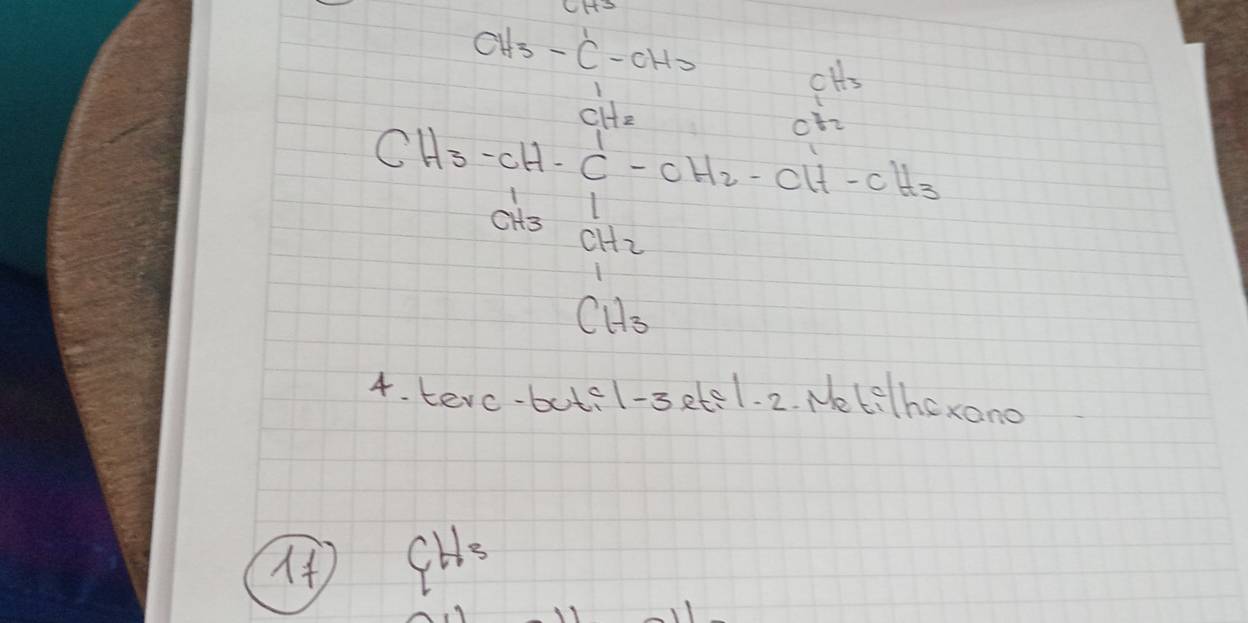 CH3
CH3 - C - CH3
CH2
CH3
CH2
CH3 - CH - C - CH2 - CH - CH3
CH3
CH2
CH3
4. terc-butil-3etil-2-Metilhexano
17
CH3